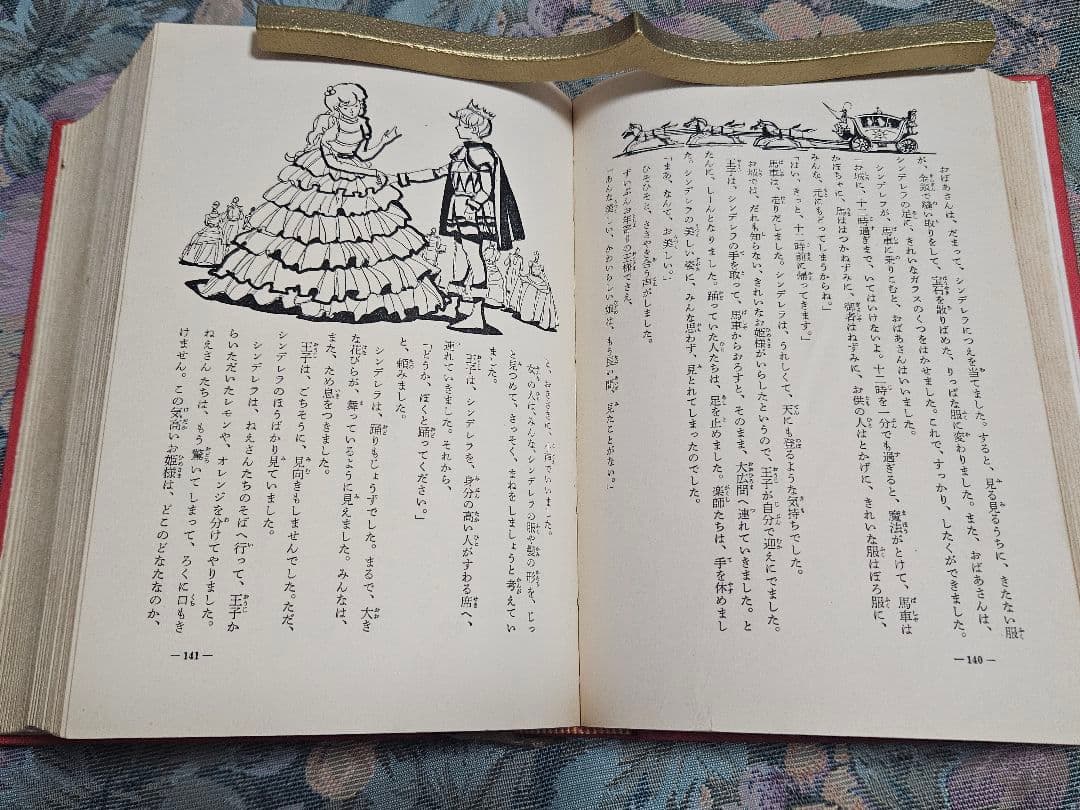 おばあさんは、だまって、シンデレラにつえを当てました。すると、見る見るうちに、きたない服
が、金銀で縫い取りをして、宝石を散りばめた、りっぱな服に変わりました。また、おばあさんは、
シンデレラの足に、きれいなガラスのくつをはかせました。これで、すっかり、したくができました。
シンデレラが、馬車に乗りこむと、おばあさんはいいました。
「お城に、十二時過ぎまで、いてはいけないよ。十二時を一分でも過ぎると、魔法がとけて、馬車は
かぼちゃに、馬ははつかねずみに、御者はねずみに、お供の人はとかげに、きれいな服はぼろ服に、
みんな、元にもどってしまうからね。」
「はい、きっと、十二時前に帰ってきます。」
馬車は、走りだしました。シンデレラは、うれしくて、天にも登るような気持ちでした。
お城では、だれも知らない、きれいなお姫様がいらしたというので、王子が自分で迎えにでました。
王子は、シンデレラの手を取って、馬車からおろすと、そのまま、大広間へ連れていきました。と
たんに、しーんとなりました。踊っていた人たちは、足を止めました。楽師たちは、手を休めまし
た。シンデレラの美しい姿に、みんな思わず、見とれてしまったのでした。
「まあ、なんて、お美しい。」
ひそひそと、ささやき合う声がしました。
ずいぶんお年寄りの王様でさえ、
「あんな美しい、かわいらしい姫は、もう長い間、見たことがない。」
―140―
と、おきさきに、小声でいいました。
女の人は、みんな、シンデレラの服や髪の形を、じっ
と見つめて、さっそく、まねをしましょうと考えてい
ました。
王子は、シンデレラを、身分の高い人がすわる席へ、
連れていきました。それから、
「どうか、ぼくと踊ってください。」
と、頼みました。
シンデレラは、踊りもじょうずでした。まるで、大き
な花びらが、舞っているように見えました。みんなは、
また、ため息をつきました。
王子は、ごちそうに、見向きもしませんでした。ただ、
シンデレラのほうばかり見ていました。
シンデレラは、ねえさんたちのそばへ行って、王子か
らいただいたレモンや、オレンジを分けてやりました。
ねえさんたちは、もう驚いてしまって、ろくに口もき
けません。この気高いお姫様は、どこのどなたなのか、
―141―